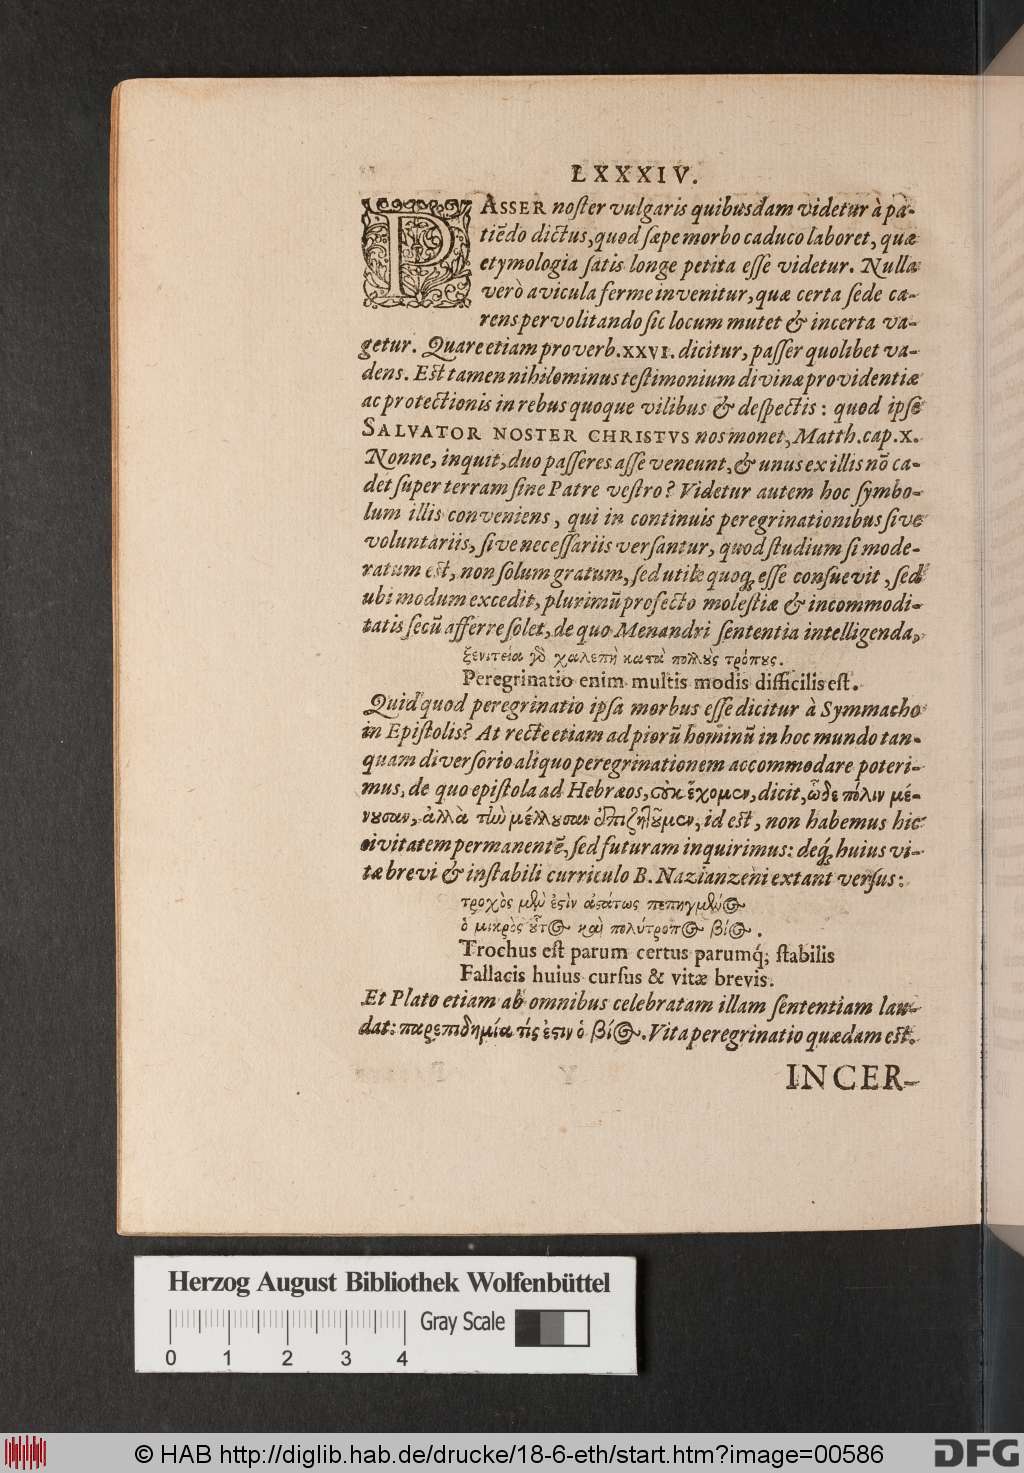 LXXXIV.
PASSER noſter vulgaris quibusdam videtur à pa-
tiẽdo dictus, quod ſæpe morbo caduco laboret, quæ
etymologia ſatis longe petita eſſe videtur. Nulla
verò avicula ferme invenitur, quæ certa ſede ca-
rens pervolitando ſic locum mutet & incerta va-
getur. Quare etiam proverb. XXVI. dicitur, paſſer quolibet va-
dens. Est tamen nihilominus teſtimonium divinæ providentiæ
ac protectionis in rebus quoque vilibus & deſpectis: quod ipſe
SALVATOR NOSTER CHRISTVS nos monet, Matth. cap. X.
Nonne, inquit, duo paſſeres aſſe veneunt, & unus ex illis nõ ca-
det ſuper terram ſine Patre veſtro? Videtur autem hoc ſymbo-
lum illis conveniens, qui in continuis peregrinationibus ſive
voluntariis, ſive neceſſariis verſantur, quod ſtudium ſi mode-
ratum est, non ſolum gratum, ſed utile quoq; eſſe conſuevit, ſed
ubi modum excedit, plurimũ profecto moleſtiæ & incommodi-
tatis ſecũ afferre ſolet, de quo Menandri ſententia intelligenda,
ξενιτεία γδ χαλεπὴ κατὰ πολλοὺς τρόπους.
Peregrinatio enim multis modis difficilis eſt.
Quid quod peregrinatio ipſa morbus eſſe dicitur à Symmacho
in Epiſtolis? At recte etiam ad piorũ hominũ in hoc mundo tan-
quam diverſorio aliquo peregrinationem accommodare poteri-
mus, de quo epiſtola ad Hebræos, οὐκ ἔχομεν, dicit, ὧδε πόλιν μέ-
νουσαν, ἀλλὰ τὼ μέλλουσαν ἐπιζητοῦμεν, id est, non habemus hic
civitatem permanentẽ, ſed futuram inquirimus: deq́; huius vi-
tæ brevi & inſtabili curriculo B. Nazianzeni extant verſus:
τροχὸς μὲν ἐστὶν ἀστάτως πεπηγμένος
ὁ μικρὸς οὗτος καὶ πολύτροπος βίος.
Trochus eſt parum certus parumq́; ſtabilis
Fallacis huius curſus & vitæ brevis.
Et Plato etiam ab omnibus celebratam illam ſententiam lau-
dat: παρεπιδημία τίς ἐστιν ὁ βίος. Vita peregrinatio quædam est.
INCER-
Herzog August Bibliothek Wolfenbüttel
Gray Scale
0 1 2 3 4
© HAB http://diglib.hab.de/drucke/18-6-eth/start.htm?image=00586
DFG